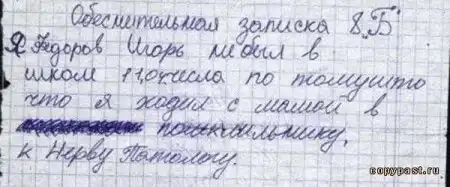 Обеснительная записка 8.Б
Я Федоров Игорь не был в
школ 11,0 числа по томушто
что я ходил с мамой в
к Нерву Патологу.
copypast.ru